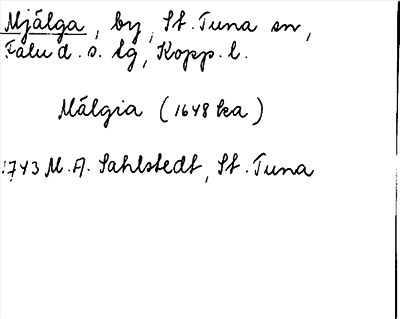 Mjälga, by, St. Tuna sn,
Falu d. s. lg, Kopp. l.
Mälgia (1648 ka)
1743 M. A. Sahlstedt, St. Tuna